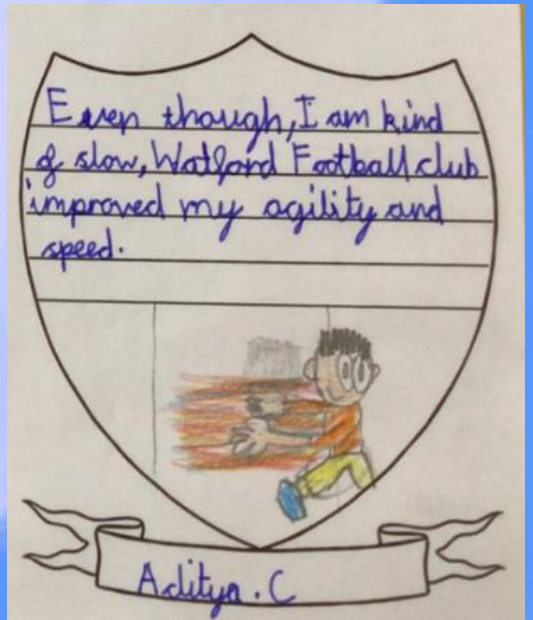 Even though, I am kind
of slow, Watford Football club
improved my agility and
speed.
Aditya . C